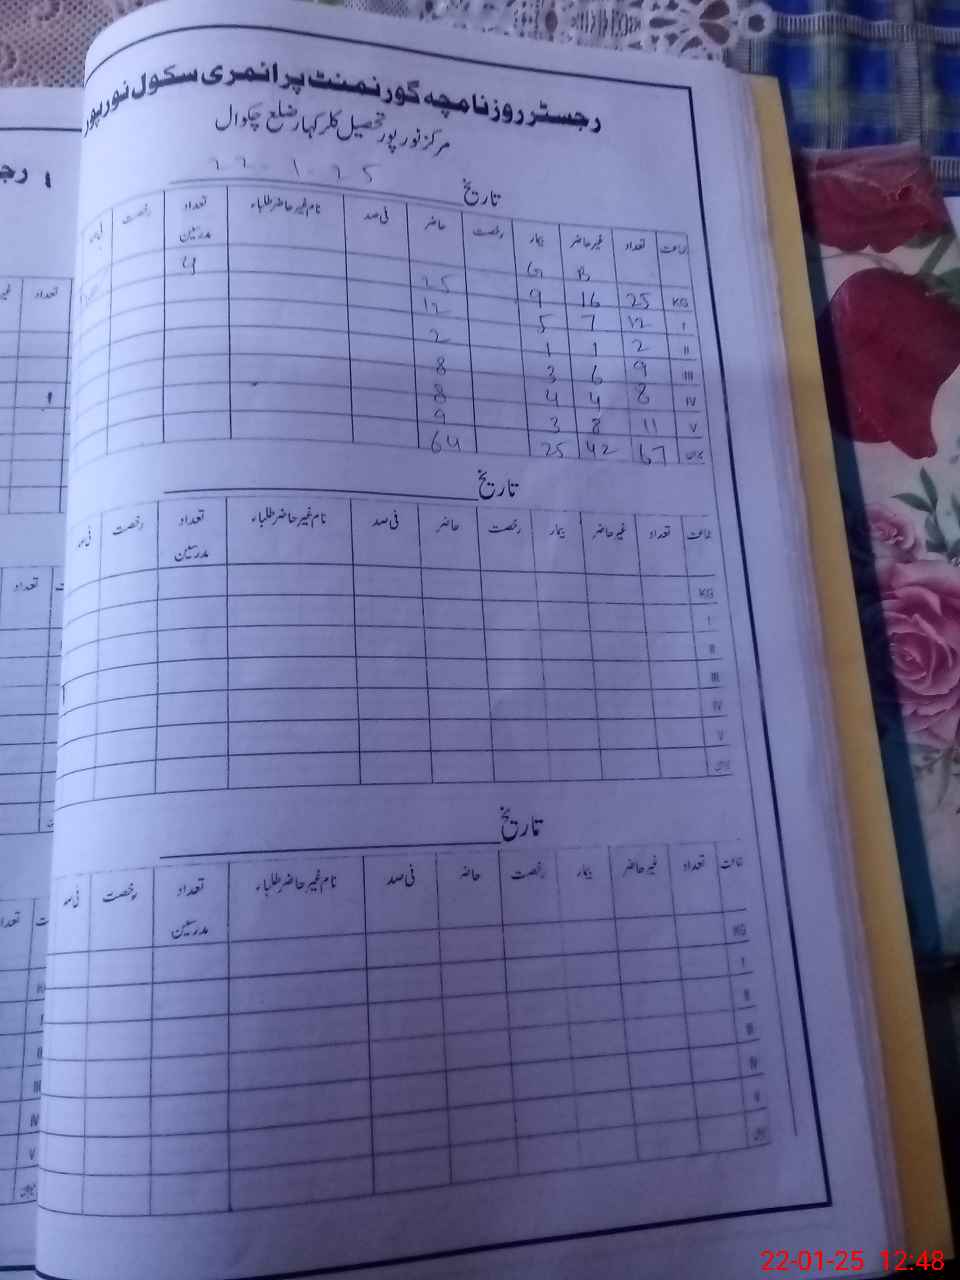 رجسٹر روزنامچہ گورنمنٹ پرائمری سکول نور پور
مرکز نور پور تحصیل کلر کہار ضلع چکوال
تاریخ 22-1-25
جماعت تعداد غیر حاضر بیمار رخصت حاضر فی صد نام غیر حاضر طلباء تعداد مدرسین رخصت فی صد
B G 4
KG 25 16 9 25
I 12 7 5 12
II 2 1 1 2
III 9 6 3 8
IV 8 4 4 8
V 11 8 3 9
میزان 67 42 25 64
تاریخ
جماعت تعداد غیر حاضر بیمار رخصت حاضر فی صد نام غیر حاضر طلباء تعداد مدرسین رخصت فی صد
KG
I
II
III
IV
V
میزان
تاریخ
جماعت تعداد غیر حاضر بیمار رخصت حاضر فی صد نام غیر حاضر طلباء تعداد مدرسین رخصت فی صد
KG
I
II
III
IV
V
میزان
22-01-25 12:48